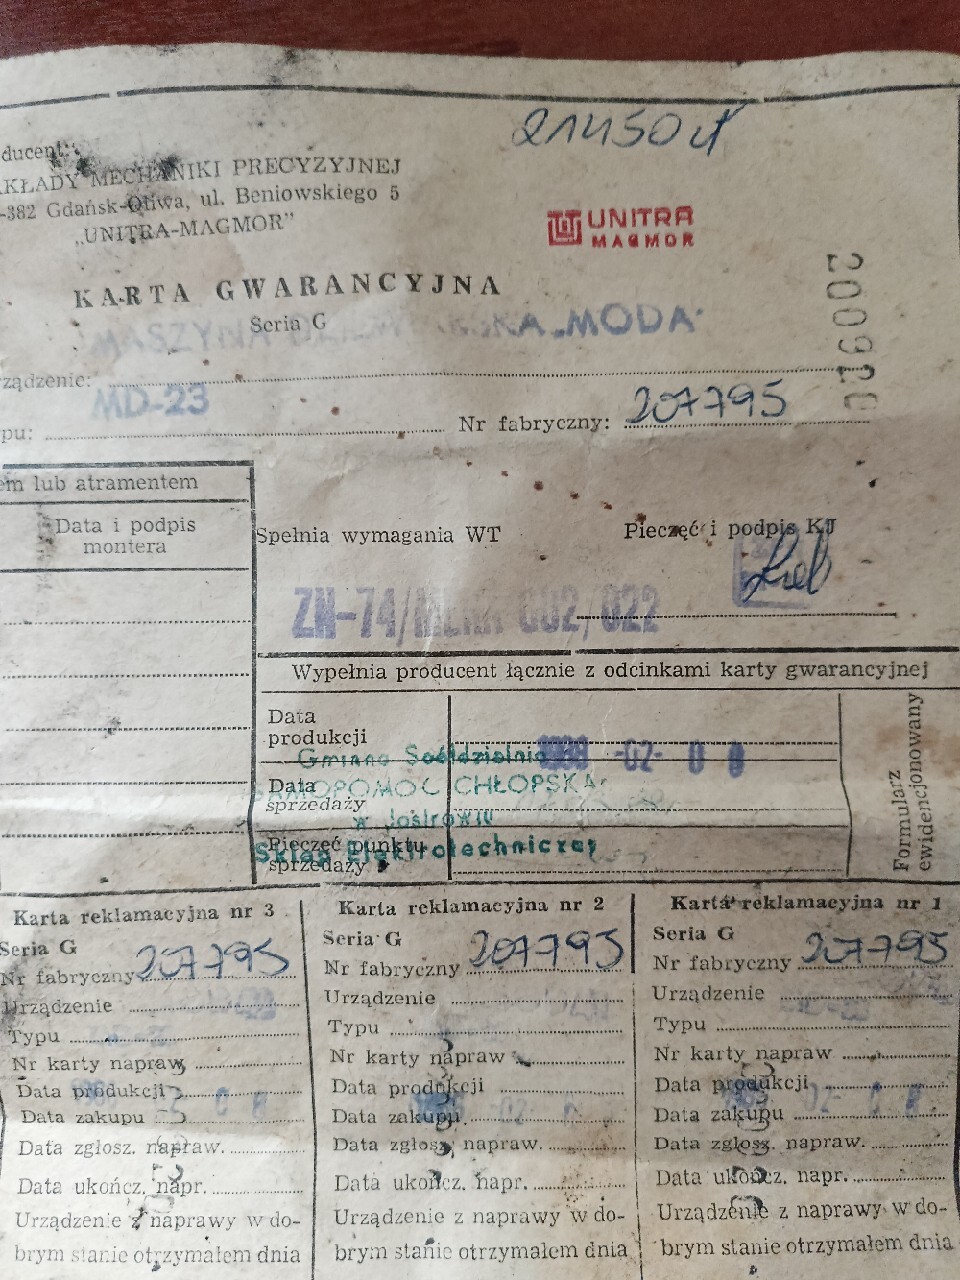 21450 zł
ducent:
KŁADY MECHANIKI PRECYZYJNEJ
-382 Gdańsk-Oliwa, ul. Beniowskiego 5
„UNITRA-MAGMOR”
UNITRA
MAGMOR
KARTA GWARANCYJNA
Seria G
MASZYNA „MODA”
036002
ządzenie:
MD-23
pu: Nr fabryczny: 207795
em lub atramentem
Data i podpis
montera
Spełnia wymagania WT
Pieczęć i podpis KJ
ZN-74/ 002/022
Wypełnia producent łącznie z odcinkami karty gwarancyjnej
Data
produkcji
-02- 0 8
Gminna Spółdzielnia
Data
sprzedaży
SAMOPOMOC CHŁOPSKA
w
Pieczęć punktu
sprzedaży
Sklep Elektrotechniczny
Formularz
ewidencjonowany
Karta reklamacyjna nr 3
Seria G
Nr fabryczny 207795
Urządzenie
Typu
Nr karty napraw
Data produkcji
Data zakupu
Data zgłosz. napraw.
Data ukończ. napr.
Urządzenie z naprawy w do-
brym stanie otrzymałem dnia
Karta reklamacyjna nr 2
Seria G
Nr fabryczny 207795
Urządzenie
Typu
Nr karty napraw
Data produkcji
Data zakupu
Data zgłosz. napraw.
Data ukończ. napr.
Urządzenie z naprawy w do-
brym stanie otrzymałem dnia
Karta reklamacyjna nr 1
Seria G
Nr fabryczny 207795
Urządzenie
Typu
Nr karty napraw
Data produkcji
Data zakupu
Data zgłosz. napraw.
Data ukończ. napr.
Urządzenie z naprawy w do-
brym stanie otrzymałem dnia